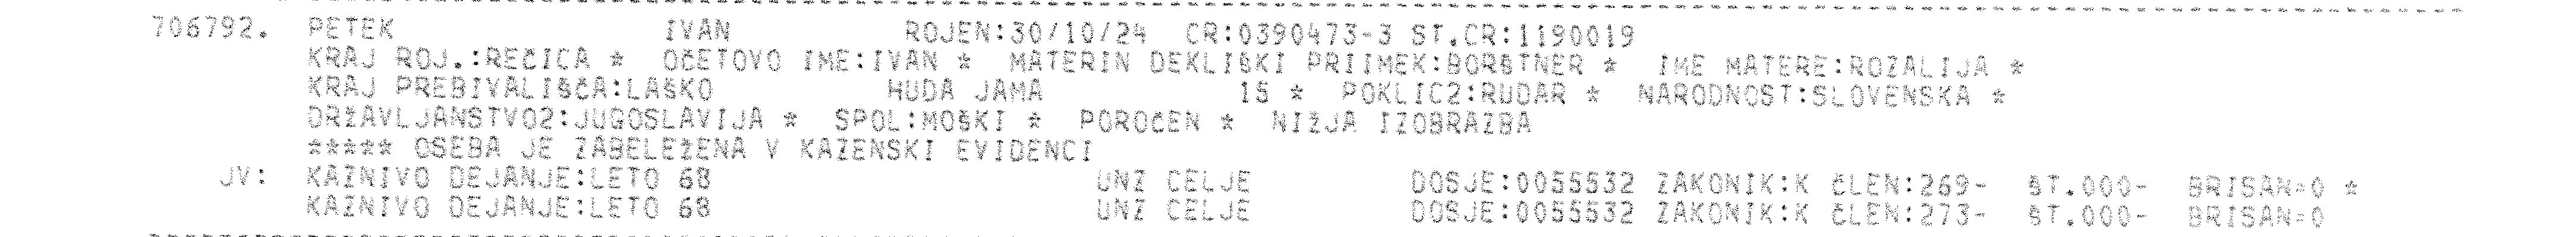 706792. PETEK IVAN ROJEN:30/10/24 CR:0390473-3 ST.CR:1190019
KRAJ ROJ.:REČICA * OČETOVO IME:IVAN * MATERIN DEKLIŠKI PRIIMEK:BORŠTNER * IME MATERE:ROZALIJA *
KRAJ PREBIVALIŠČA:LAŠKO HUDA JAMA 15 * POKLIC2:RUDAR * NARODNOST:SLOVENSKA *
DRŽAVLJANSTVO2:JUGOSLAVIJA * SPOL:MOŠKI * POROČEN * NIŽJA IZOBRAZBA
***** OSEBA JE ZABELEŽENA V KAZENSKI EVIDENCI
JV: KAZNIVO DEJANJE:LETO 68 UNZ CELJE DOSJE:0055532 ZAKONIK:K ČLEN:269- ŠT.000- BRISAN=0 *
KAZNIVO DEJANJE:LETO 68 UNZ CELJE DOSJE:0055532 ZAKONIK:K ČLEN:273- ŠT.000- BRISAN=0